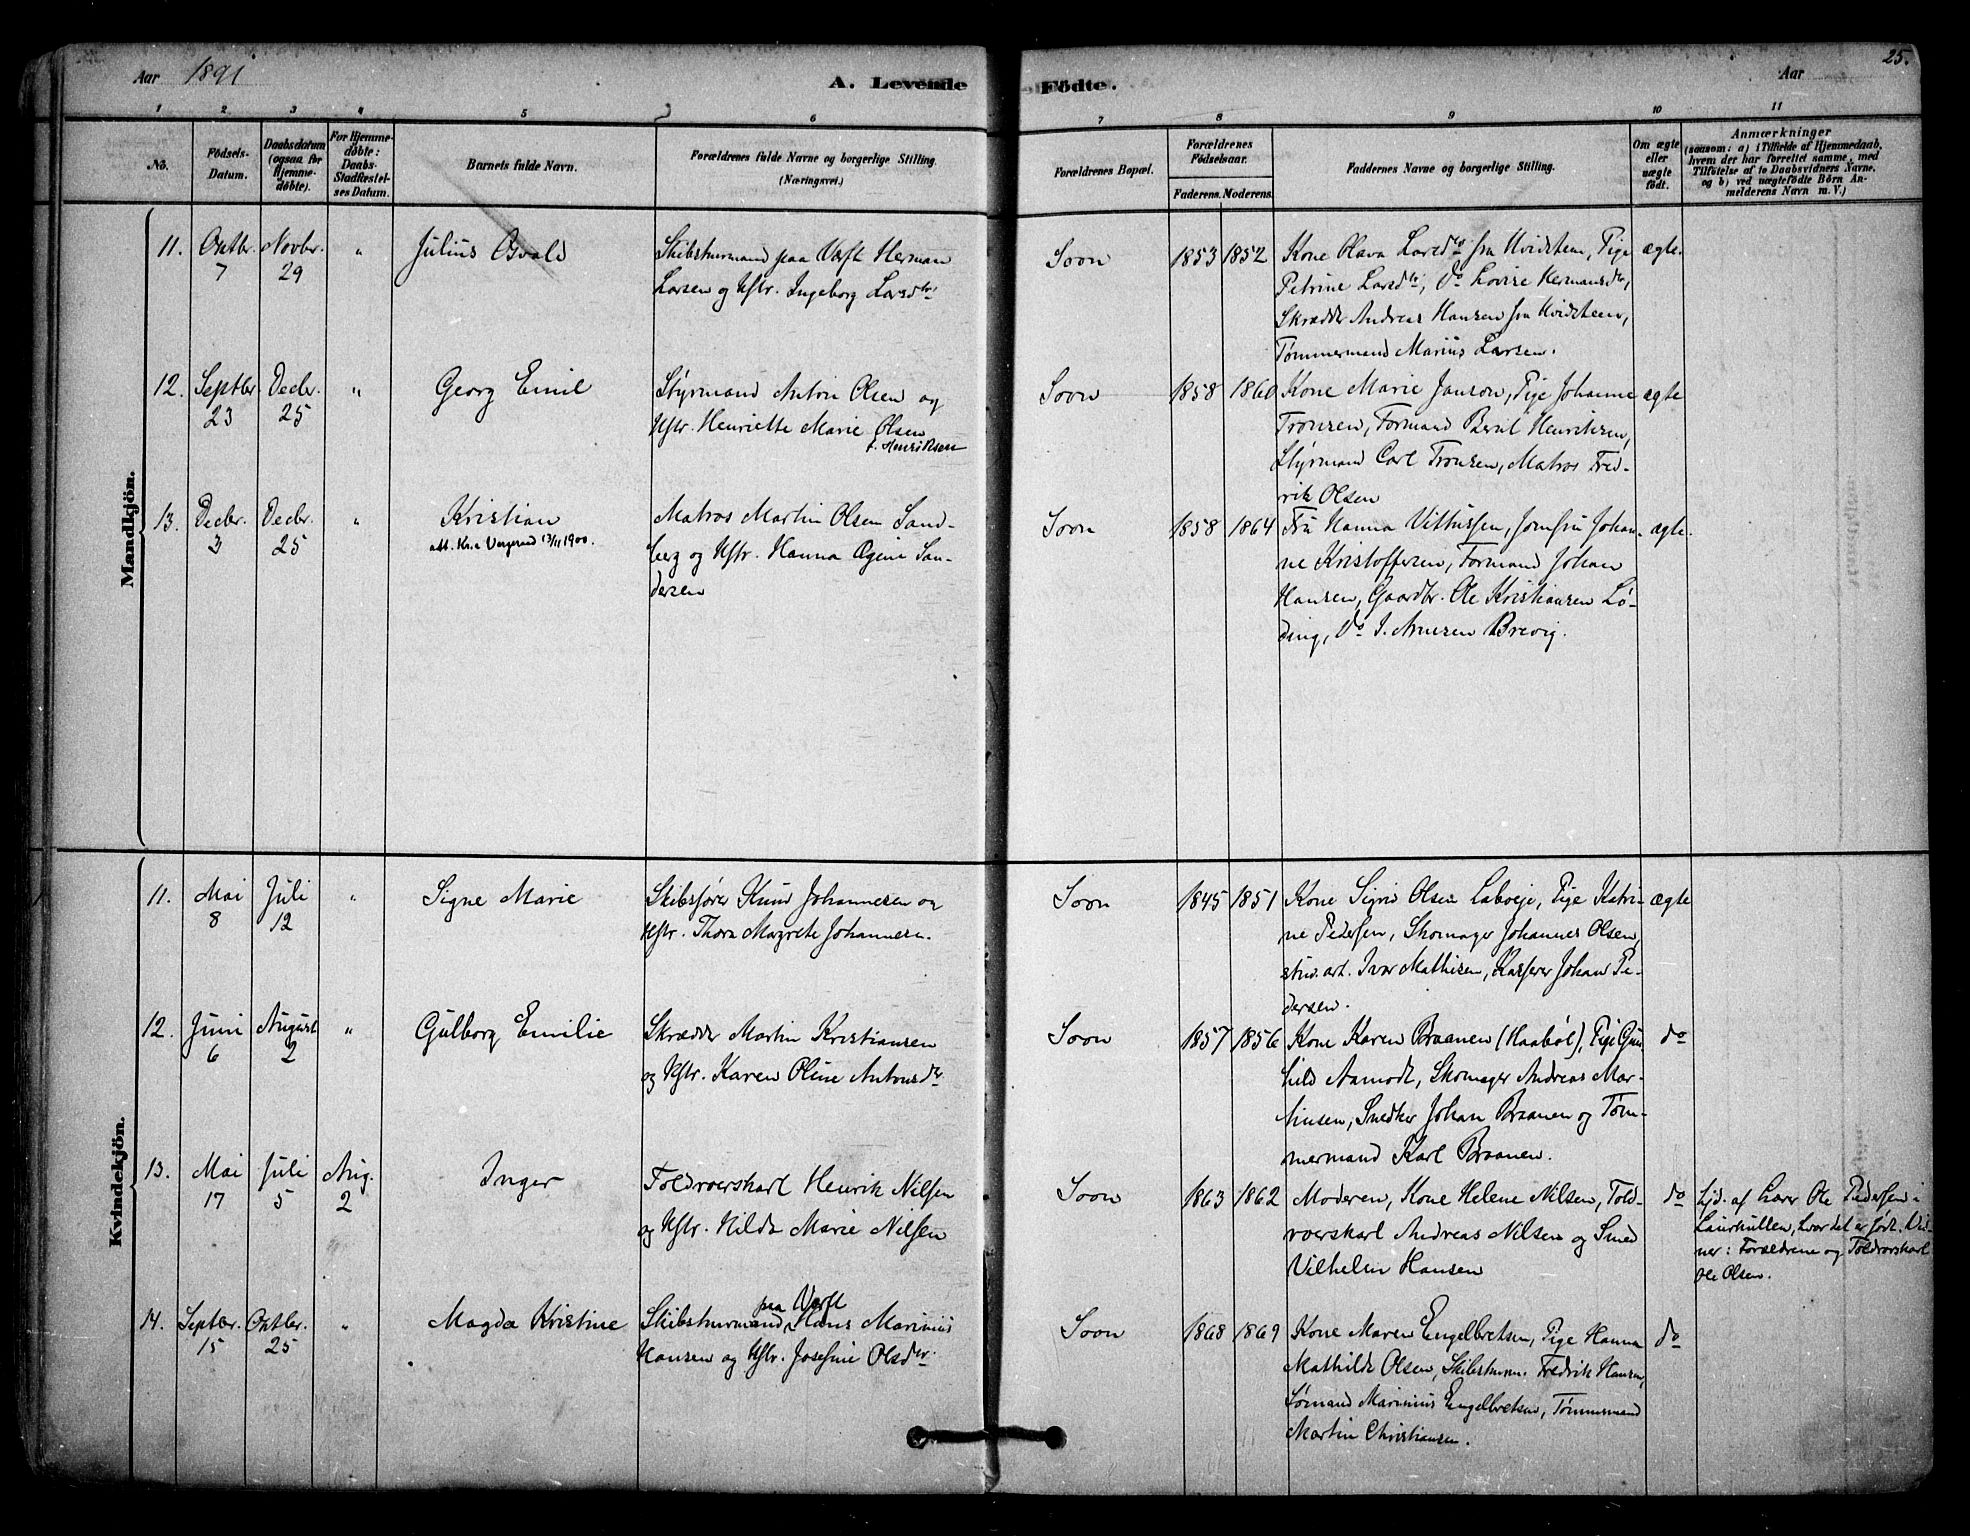 Aar 1891
A. Levende Födte.
Aar
25.
1 2 3 4 5 6 7 8 9 10 11
No.
Födsels-
Datum.
Daabsdatum
(ogsaa for
Hjemme-
døbte).
For Hjemme-
døbte:
Daabs-
Stadfæstel-
ses Datum.
Barnets fulde Navn.
Forældrenes fulde Navne og borgerlige Stilling.
(Næringsvei.)
Forældrenes Bopæl.
Forældrenes
Födselsaar.
Faderens. Moderens.
Faddernes Navne og borgerlige Stilling.
Om ægte
eller
uægte
födt.
Anmærkninger
(saasom: a) i Tilfælde af Hjemmedaab,
hvem der har forrettet samme, med
Tilföielse af to Daabsvidners Navne,
og b) ved uægtefödte Börn An-
melderens Navn m. V.)
Mandkjön.
11. Oktbr. 7
Novbr. 29
"
Julius Osvald
Skibstømmermand paa Værft Herman
Larsen og Hstr. Ingeborg Larsdtr.
Soon
1853 1852
Kone Olava Larsdtr fra Hvidsteen, Pige
Petrine Larsdtr, Do Lovise Hermansdtr,
Skrædder Andreas Hansen fra Hvidsteen,
Tømmermand Marius Larsen.
ægte.
12. Septbr. 23
Decbr. 25
"
Georg Emil
Styrmand Anton Olsen og
Hstr. Henriette Marie Olsen
f. Henriksen
Soon
1858 1860
Kone Marie Janson, Pige Johanne
Tronsen, Formand Bernt Henriksen,
Styrmand Carl Tronsen, Matros Fred-
rik Olsen
ægte
13. Decbr. 3
Decbr. 25
"
Kristian
att. Kr.a 13/11 1900.
Matros Martin Olsen Sand-
berg og Hstr. Hanna Ogine San-
dersen
Soon
1858 1864
Fru Hanna Vithussen, Jomfru Johan-
ne Kristoffersen, Formand Johan
Hansen, Gaardbr. Ole Kristiansen Lø-
ding, Do I. Arnesen Brevig.
ægte.
Kvindekjön.
11. Mai 8
Juli 12
"
Signe Marie
Skibsfører Knud Johannesen og
Hstr. Thora Margrete Johannesen.
Soon
1845 1851
Kone Sigrid Olsen Labveje, Pige Katri-
ne Pedersen, Skomager Johannes Olsen,
stud. art. Ivar Mathisen, Kasserer Johan Pe-
dersen.
ægte
12. Juni 6
August 2
"
Gulborg Emilie
Skrædder Martin Kristiansen
og Hstr. Karen Oline Antonsdtr
Soon
1857 1856
Kone Karen Braanen (Haabøl), Pige Gun-
hild Aamodt, Skomager Andreas Mar-
tinsen, Snedker Johan Braanen og Tøm-
mermand Karl Braanen.
do
13. Mai 17
Juli 5
Aug. 2
Inger
Toldroerskarl Henrik Nilsen
og Hstr. Hilda Marie Nilsen
Soon
1863 1862
Moderen, Kone Helene Nilsen, Told-
roerskarl Andreas Nilsen og Smed
Vilhelm Hansen
do
Hjd. af Lærer Ole Pedersen i
Laurkullen, hvor det er født. Vid-
ner: Forældrene og Toldroerskarl
Ole Olsen.
14. Septbr. 15
Oktbr. 25
"
Magda Kristine
paa Værft
Skibstømmermand Hans Marinius
Hansen og Hstr. Josefine Olsdtr.
Soon
1868 1869
Kone Maren Engelbretsen, Pige Hanna
Mathilde Olsen, Skibstømm. Fredrik Hansen,
Sømand Marinius Engelbretsen, Tømmermand
Martin Christiansen.
do